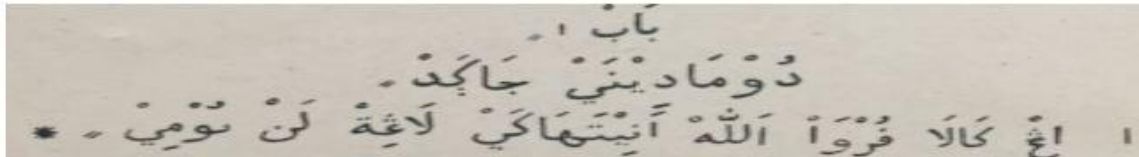 بَابْ ١.
دُوْمَادِيْنَيْ جَاكَدْ.
١ اِڠْ كَالَا ڤُرْوَا اَللّٰهْ أَنِيْتَهَاكَيْ لَاڠِةْ لَنْ بُوْمِيْ. *